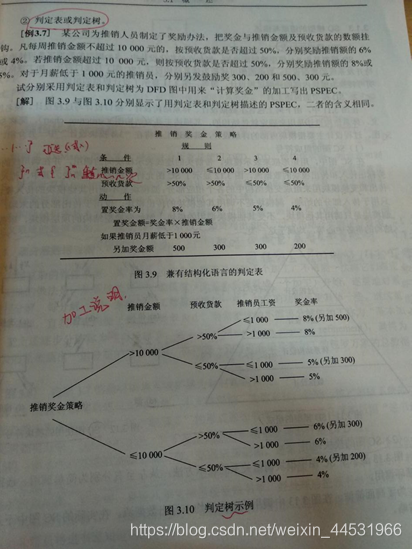 ② 判定表或判定树。
[例3.7] 某公司为推销人员制定了奖励办法，把奖金与推销金额及预收货款的数额挂
钩。凡每周推销金额不超过 10 000 元的，按预收货款是否超过 50%，分别奖励推销额的 6%
或 4%。若推销金额超过 10 000 元，则按预收货款是否超过 50%，分别奖励推销额的 8%或
5%。对于月薪低于 1 000 元的推销员，分别另发鼓励奖 300、200 和 500、300 元。
试分别采用判定表和判定树为 DFD 图中用来“计算奖金”的加工写出 PSPEC。
[解] 图 3.9 与图 3.10 分别显示了用判定表和判定树描述的 PSPEC，二者的含义相同。
推 销 奖 金 策 略
规 则
条 件 1 2 3 4
推销金额 >10 000 ≤10 000 >10 000 ≤10 000
预收货款 >50% >50% ≤50% ≤50%
动 作
置奖金率为 8% 6% 5% 4%
置奖金额=奖金率×推销金额
如果推销员月薪低于1 000元
另加奖金额 500 300 300 200
图 3.9 兼有结构化语言的判定表
加工说明
推销金额 预收货款 推销员工资 奖金率
≤1 000 8% (另加 500)
>50%
>1 000 8%
>10 000
≤1 000 5% (另加 300)
≤50%
>1 000 5%
推销奖金策略
≤1 000 6% (另加 300)
>50%
>1 000 6%
≤10 000
≤1 000 4% (另加 200)
≤50%
>1 000 4%
图 3.10 判定树示例
https://blog.csdn.net/weixin_44531966